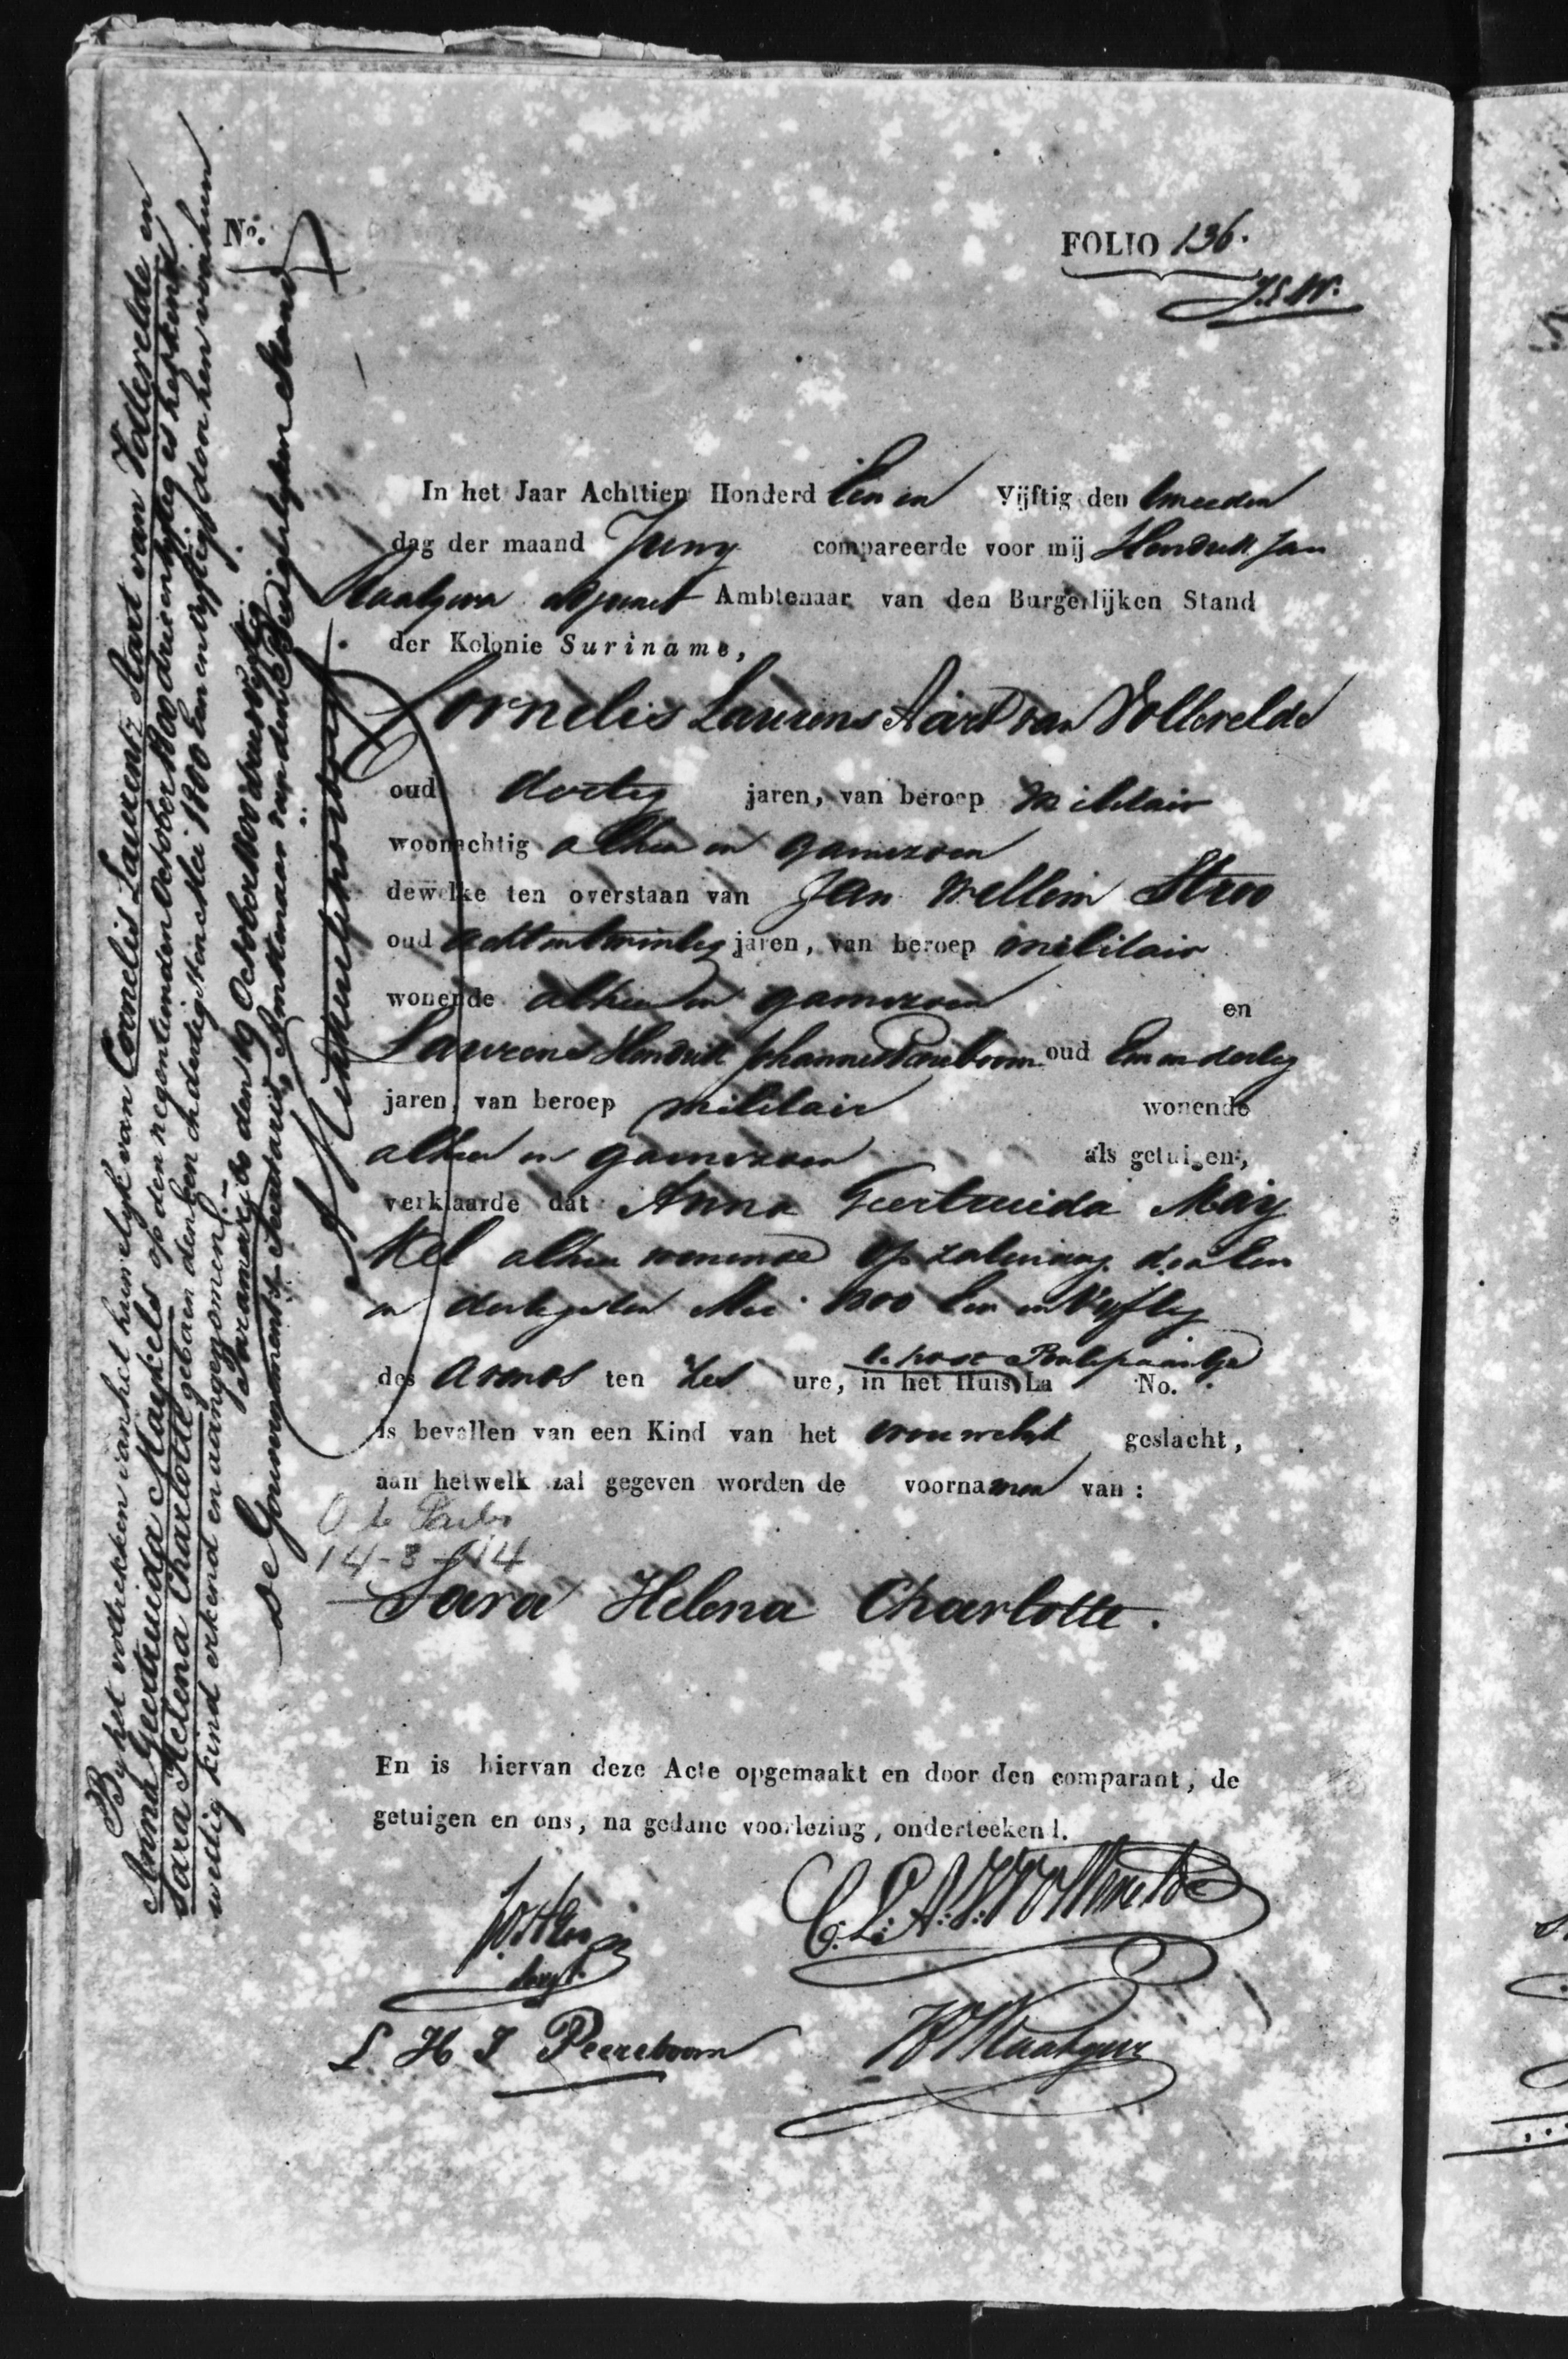 No.
FOLIO 136.
In het Jaar Achttien Honderd Een en Vijftig den tweeden
dag der maand Juny compareerde voor mij Hendrik Jan
adjunct Ambtenaar van den Burgerlijken Stand
der Kolonie Suriname,
Cornelis Laurens Aart van Vollevelde
oud dertig jaren, van beroep militair
woonachtig alhier in garnizoen
dewelke ten overstaan van Jan Willem
oud achtentwintig jaren, van beroep militair
wonende alhier in garnizoen en
Laurens Hendrik Johannes Peereboom oud Een en dertig
jaren, van beroep militair wonende
alhier in garnizoen als getuigen,
verklaarde dat Anna Geertruida May
kel alhier wonende op zaturdag den Een
en dertigsten Mei 1800 Een en Vyftig
des avonds ten zes ure, in het Huis La No.
is bevallen van een Kind van het vrouwelijk geslacht,
aan hetwelk zal gegeven worden de voornamen van :
14-3-14
Sara Helena Charlotte.
En is hiervan deze Acte opgemaakt en door den comparant, de
getuigen en ons, na gedane voorlezing, onderteekend.
L H J Peereboom
By het voltrekken van het huwelyk van Cornelis Laurentz Aart van Vollevelde en
Anna Geertruida Maykels op den negentienden October 1800 drie en vyftig is het kind
Sara Helena Charlotte geboren den Een en dertigsten Mei 1800 Een en vyftig door hen voor hun
wettig kind erkend en aangenomen.
Paramaribo den 19 October 1800 drie en vyftig
de Gouvernements Secretaris, Ambtenaar van den Burgerlyken Stand